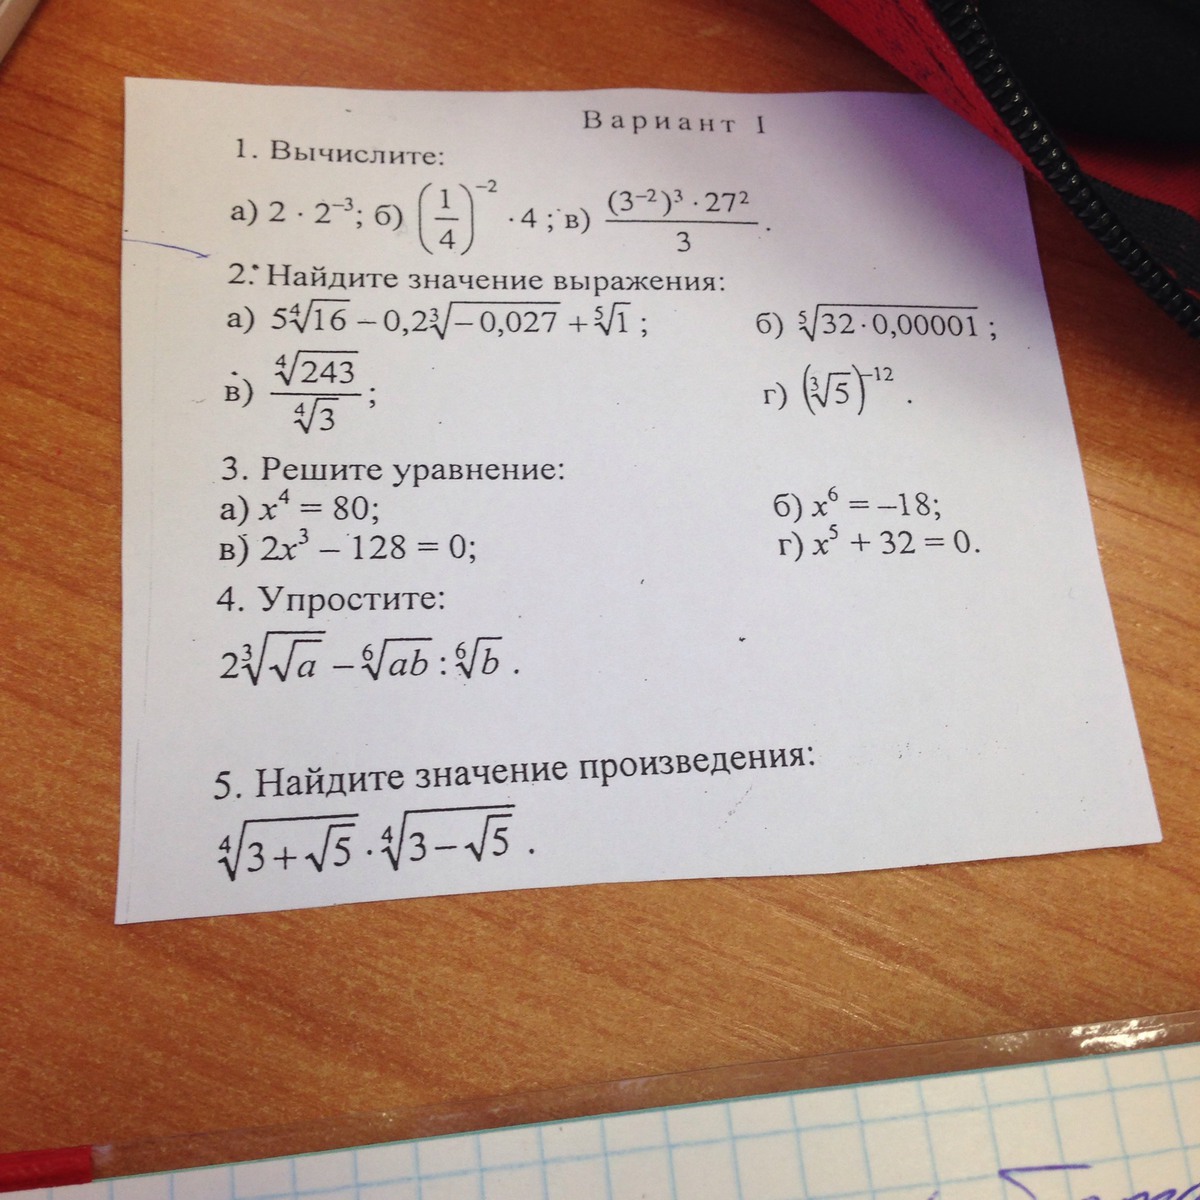 Вариант I
1. Вычислите:
а) 2 · 2⁻³; б) (1/4)⁻² · 4; в) (3⁻²)³ · 27² / 3.
2. Найдите значение выражения:
а) 5∜16 – 0,2∛–0,027 + ⁵√1; б) ⁵√32·0,00001;
в) ∜243 / ∜3; г) (∛5)⁻¹².
3. Решите уравнение:
а) x⁴ = 80; б) x⁶ = –18;
в) 2x³ – 128 = 0; г) x⁵ + 32 = 0.
4. Упростите:
2∛√a – ⁶√ab : ⁶√b.
5. Найдите значение произведения:
∜(3+√5) · ∜(3–√5).